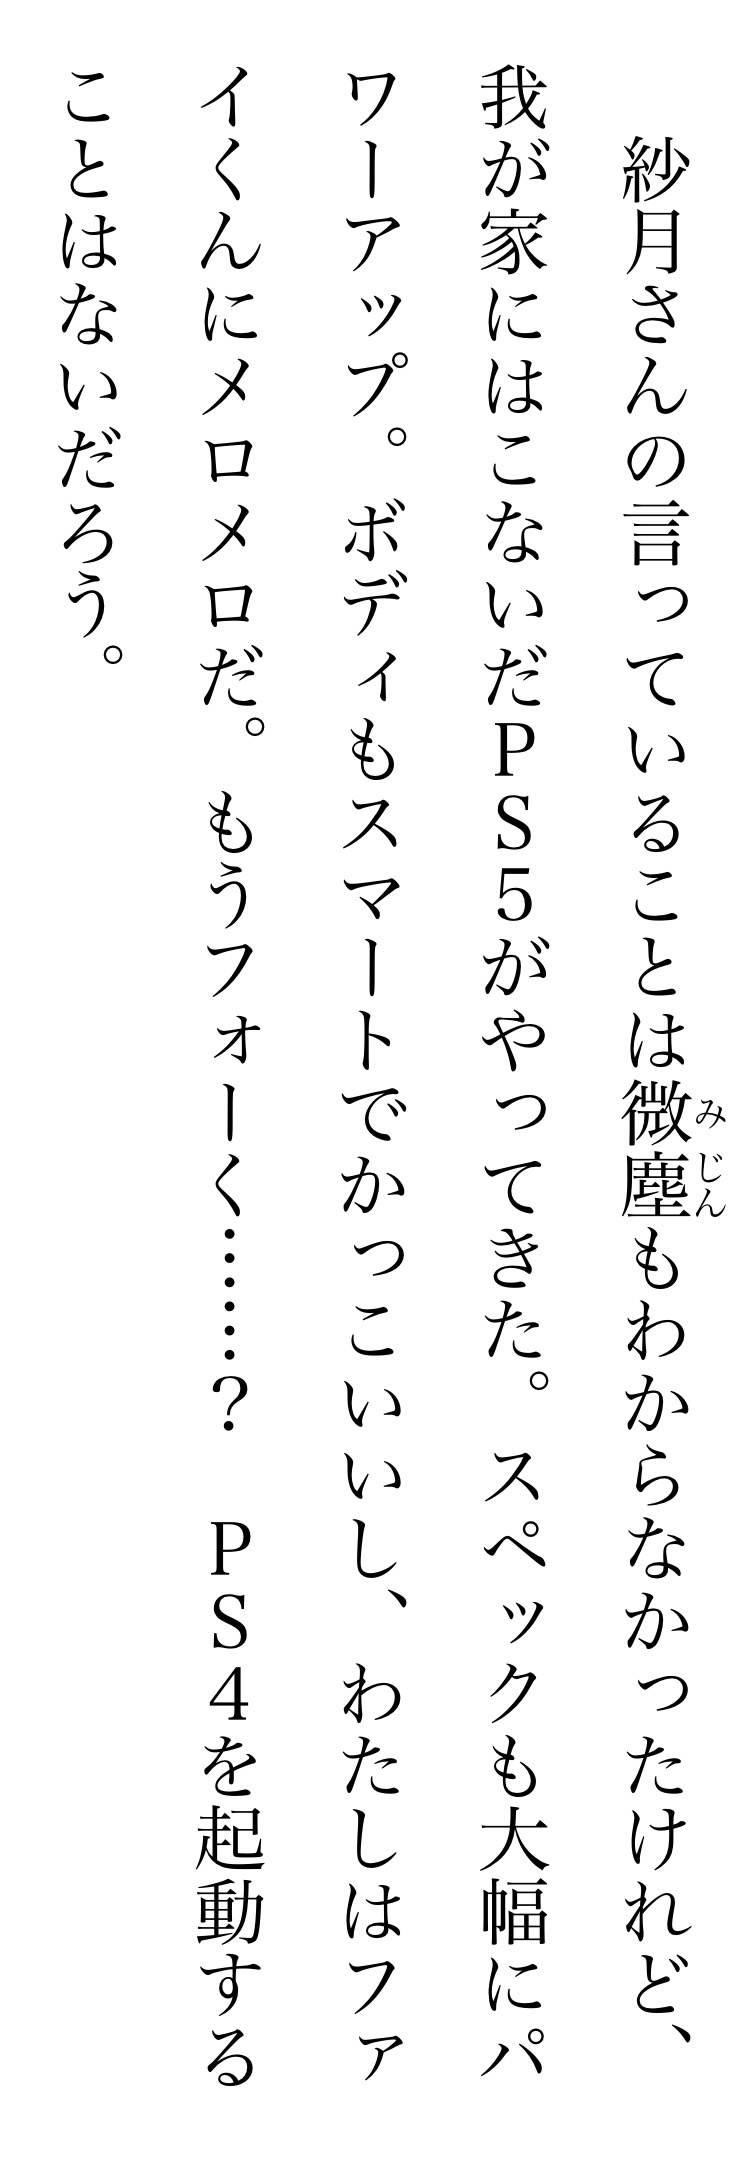 紗月さんの言っていることは微塵もわからなかったけれど、
我が家にはこないだＰＳ５がやってきた。スペックも大幅にパ
ワーアップ。ボディもスマートでかっこいいし、わたしはファ
イくんにメロメロだ。もうフォーく……？　ＰＳ４を起動する
ことはないだろう。